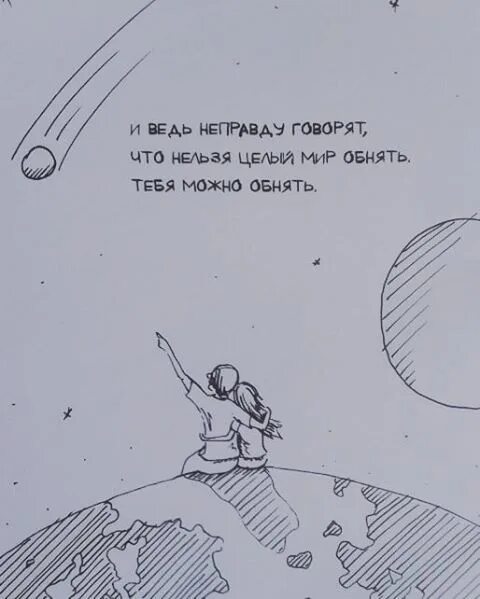 И ВЕДЬ НЕПРАВДУ ГОВОРЯТ,
ЧТО НЕЛЬЗЯ ЦЕЛЫЙ МИР ОБНЯТЬ.
ТЕБЯ МОЖНО ОБНЯТЬ.